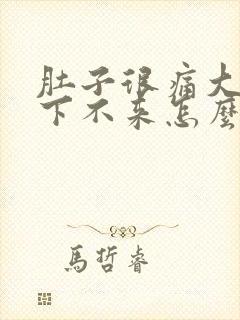 肚子很痛大
下不来怎麼
馬哲睿